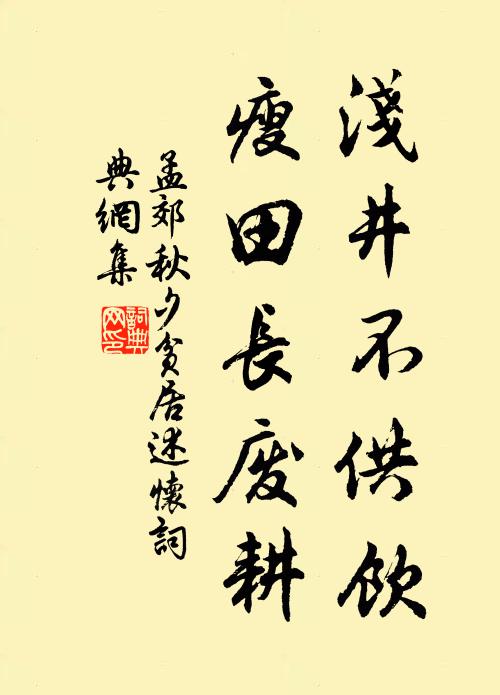 淺井不供飲
瘦田長废耕
孟郊秋夕贫居述懷詞
典網集
詞典网印